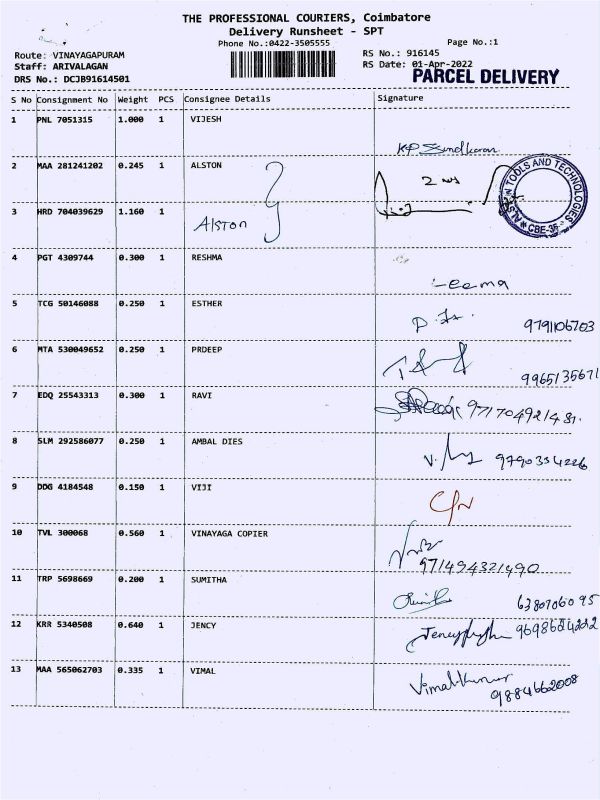 THE PROFESSIONAL COURIERS, Coimbatore
Delivery Runsheet - SPT
Phone No.:0422-3505555
Page No.:1
Route: VINAYAGAPURAM
Staff: ARIVALAGAN
DRS No.: DCJB91614501
RS No.: 916145
RS Date: 01-Apr-2022
PARCEL DELIVERY
S No Consignment No Weight PCS Consignee Details Signature
1 PNL 7051315 1.000 1 VIJESH
2 MAA 281241202 0.245 1 ALSTON
TOOLS AND TECHNOLOGIES CBE-35
3 HRD 704039629 1.160 1
Alston
4 PGT 4309744 0.300 1 RESHMA
Leema
5 TCG 50146088 0.250 1 ESTHER
9791106703
6 MTA 530049652 0.250 1 PRDEEP
9965135671
7 EDQ 25543313 0.300 1 RAVI
971704921481.
8 SLM 292586077 0.250 1 AMBAL DIES
9790334226
9 DDG 4184548 0.150 1 VIJI
10 TVL 300068 0.560 1 VINAYAGA COPIER
971494321490
11 TRP 5698669 0.200 1 SUMITHA
6380706095
12 KRR 5340508 0.640 1 JENCY
13 MAA 565062703 0.335 1 VIMAL
Vimalkumar
9884662008